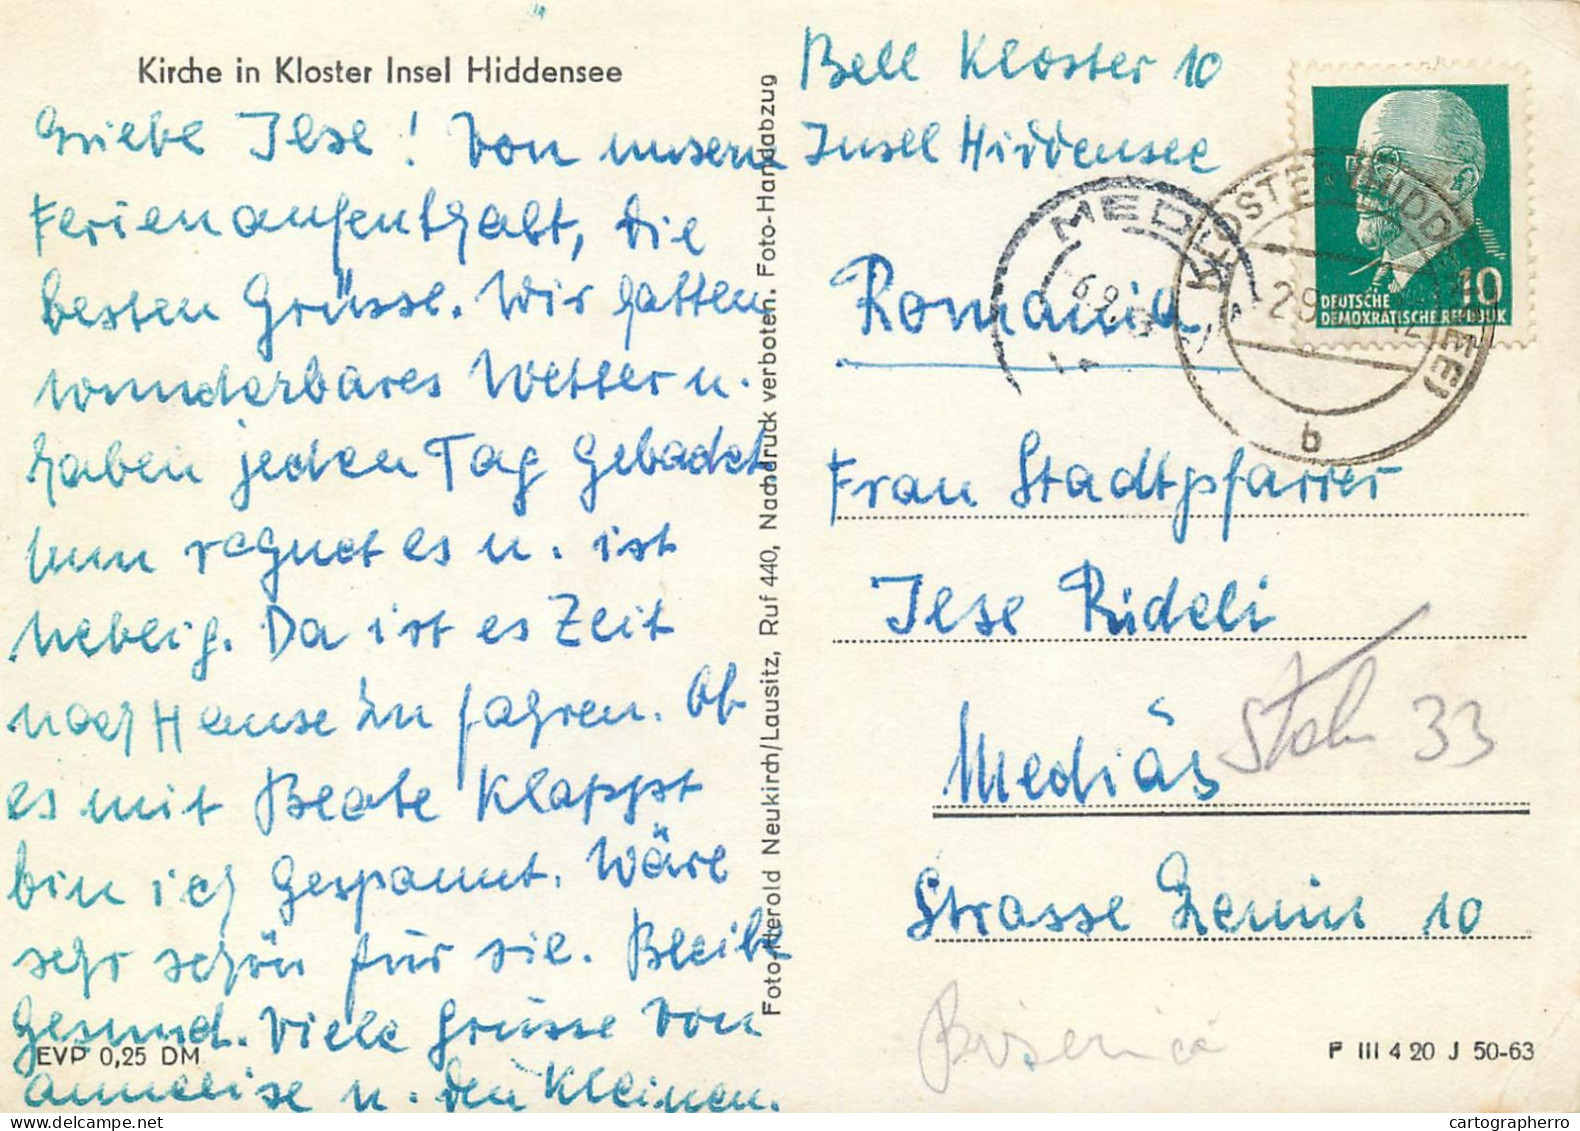 Kirche in Kloster Insel Hiddensee
Liebe Ilse! Von unserm
Ferienaufenthalt, die
besten Grüsse. Wir hatten
wunderbares Wetter u.
haben jeden Tag gebadet
nun regnet es u. ist
neblig. Da ist es Zeit
nach Hause zu fahren. Ob
es mit Beate klappt
bin ich gespannt. Wäre
sehr schön für sie. Bleibt
gesund. Viele Grüsse von
Annelise u. den Kleinen.
EVP 0,25 DM
Foto-Herold Neukirch/Lausitz, Ruf 440, Nachdruck verboten. Foto-Handabzug
Bell Kloster 10
Insel Hiddensee
DEUTSCHE
DEMOKRATISCHE REPUBLIK
10
KLOSTER (HIDDENSEE)
b
Romania
Frau Stadtpfarrer
Ilse Rideli
Mediás
33
Strasse Lenin 10
Biserica
P III 4 20 J 50-63
cartographerro